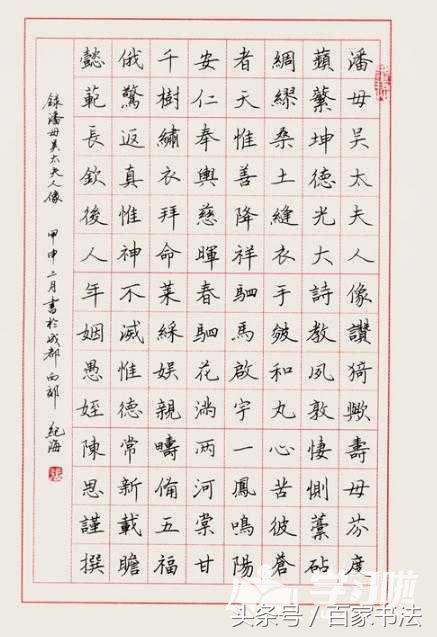 潘母吳太夫人像讚猗歟壽母芬度
蘋蘩坤德光大詩教夙敦悽惻藁砧
綢繆桑土縫衣手皴和丸心苦彼蒼
者天惟善降祥駟馬啟宇一鳳鳴陽
安仁奉輿慈暉春駟花滿兩河棠甘
千樹繡衣拜命萊綵娛親疇備五福
俄驚返真惟神不滅惟德常新載瞻
懿範長欽後人年姻愚姪陳思謹撰
錄潘母吳太夫人像 甲申二月書於成都西郊 紀海
学习啦
头条号 / 百家书法